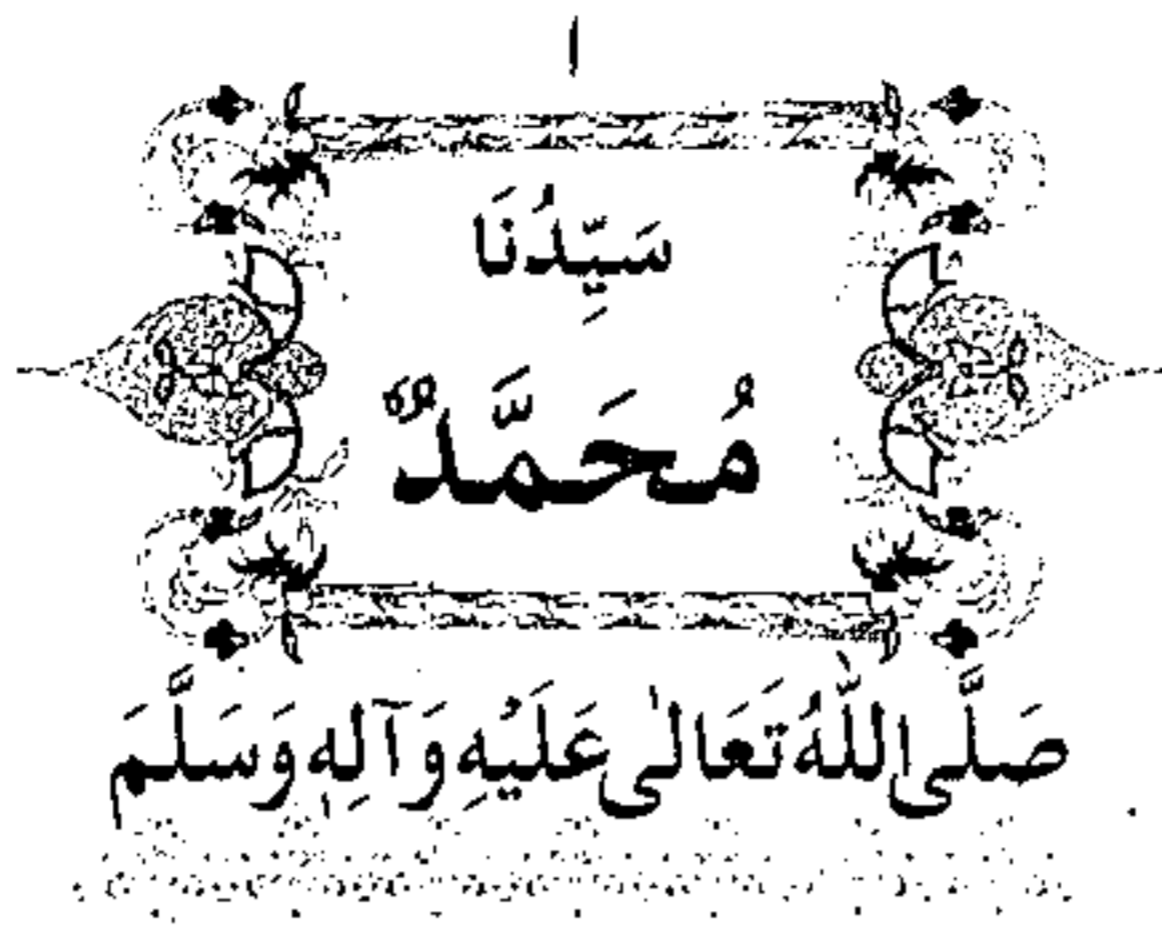 ١
سَيِّدُنَا
مُحَمَّدٌ
صَلَّى اللّٰهُ تَعَالٰى عَلَيْهِ وَآلِهٖ وَسَلَّمَ